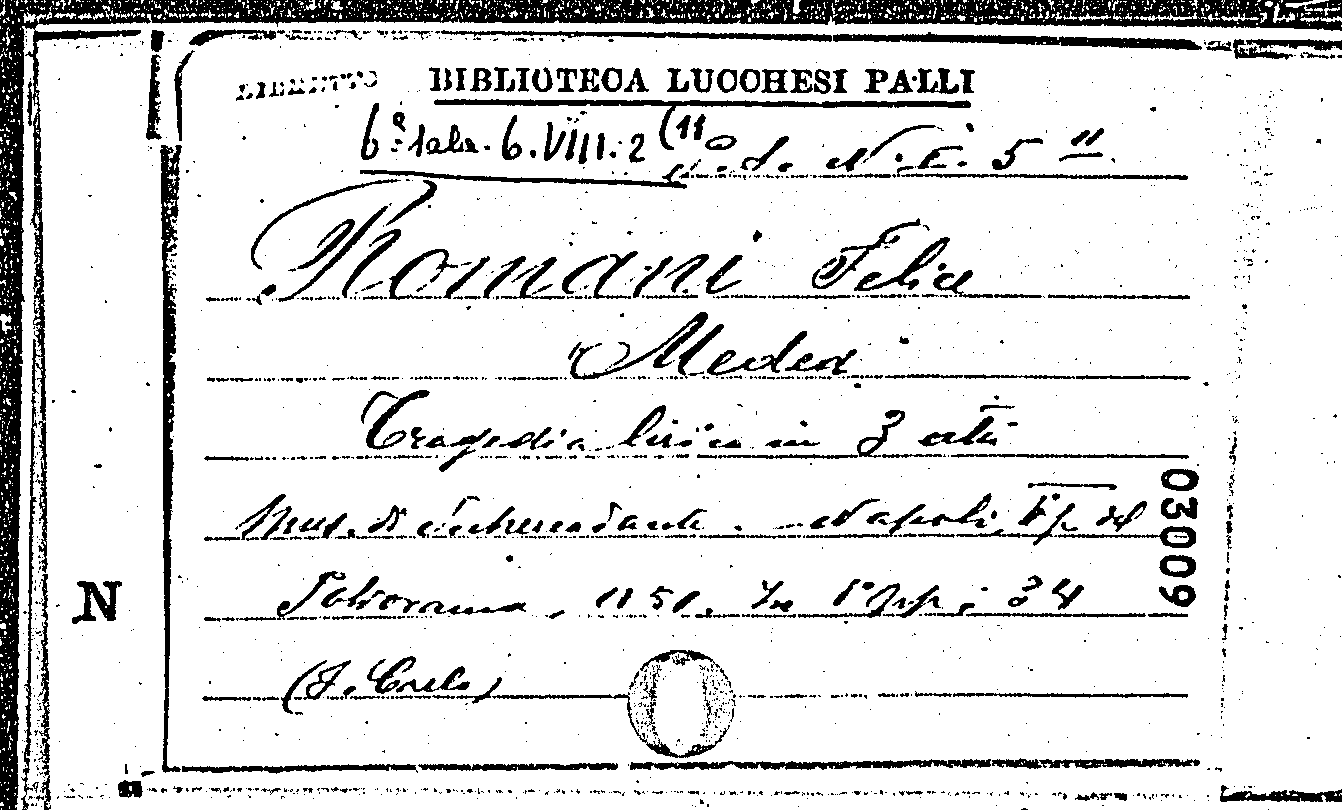 LIBRETTO BIBLIOTECA LUCCHESI PALLI
6ª Sala. 6.VIII.2 (11
N. I. 5
Romani Felice
"Medea"
Tragedia lirica in 3 atti
Mus. di Mercadante. Napoli, Tip del
Poliorama, 1851. In 8° pp. 34
(S. Carlo)
03009
N